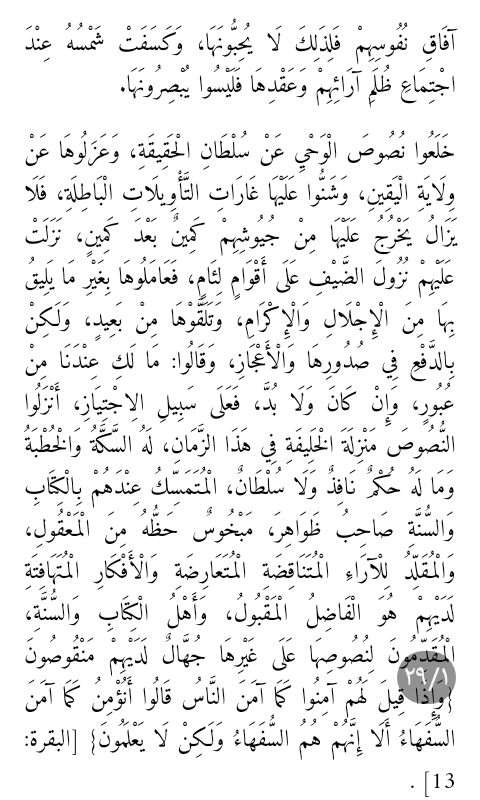 آفَاقِ نُفُوسِهِمْ فَلِذَلِكَ لَا يُحِبُّونَهَا، وَكَسَفَتْ شَمْسُهُ عِنْدَ
اجْتِمَاعِ ظُلَمِ آرَائِهِمْ وَعَقْدِهَا فَلَيْسُوا يُبْصِرُونَهَا.
خَلَعُوا نُصُوصَ الْوَحْيِ عَنْ سُلْطَانِ الْحَقِيقَةِ، وَعَزَلُوهَا عَنْ
وِلَايَةِ الْيَقِينِ، وَشَنُّوا عَلَيْهَا غَارَاتِ التَّأْوِيلَاتِ الْبَاطِلَةِ، فَلَا
يَزَالُ يَخْرُجُ عَلَيْهَا مِنْ جُيُوشِهِمْ كَمِينٌ بَعْدَ كَمِينٍ، نَزَلَتْ
عَلَيْهِمْ نُزُولَ الضَّيْفِ عَلَى أَقْوَامٍ لِئَامٍ، فَعَامَلُوهَا بِغَيْرِ مَا يَلِيقُ
بِهَا مِنَ الْإِجْلَالِ وَالْإِكْرَامِ، وَتَلَقَّوْهَا مِنْ بَعِيدٍ، وَلَكِنْ
بِالدَّفْعِ فِي صُدُورِهَا وَالْأَعْجَازِ، وَقَالُوا: مَا لَكِ عِنْدَنَا مِنْ
عُبُورٍ، وَإِنْ كَانَ وَلَا بُدَّ، فَعَلَى سَبِيلِ الِاجْتِيَازِ، أَنْزَلُوا
النُّصُوصَ مَنْزِلَةَ الْخَلِيفَةِ فِي هَذَا الزَّمَانِ، لَهُ السِّكَّةُ وَالْخُطْبَةُ
وَمَا لَهُ حُكْمٌ نَافِذٌ وَلَا سُلْطَانٌ، الْمُتَمَسِّكُ عِنْدَهُمْ بِالْكِتَابِ
وَالسُّنَّةِ صَاحِبُ ظَوَاهِرَ، مَبْخُوسٌ حَظُّهُ مِنَ الْمَعْقُولِ،
وَالْمُقَلِّدُ لِلْآرَاءِ الْمُتَنَاقِضَةِ الْمُتَعَارِضَةِ وَالْأَفْكَارِ الْمُتَهَافِتَةِ
لَدَيْهِمْ هُوَ الْفَاضِلُ الْمَقْبُولُ، وَأَهْلُ الْكِتَابِ وَالسُّنَّةِ،
الْمُقَدِّمُونَ لِنُصُوصِهَا عَلَى غَيْرِهَا جُهَّالٌ لَدَيْهِمْ مَنْقُوصُونَ
٢٩/١
{وَإِذَا قِيلَ لَهُمْ آمِنُوا كَمَا آمَنَ النَّاسُ قَالُوا أَنُؤْمِنُ كَمَا آمَنَ
السُّفَهَاءُ أَلَا إِنَّهُمْ هُمُ السُّفَهَاءُ وَلَكِنْ لَا يَعْلَمُونَ} [البقرة:
13] .